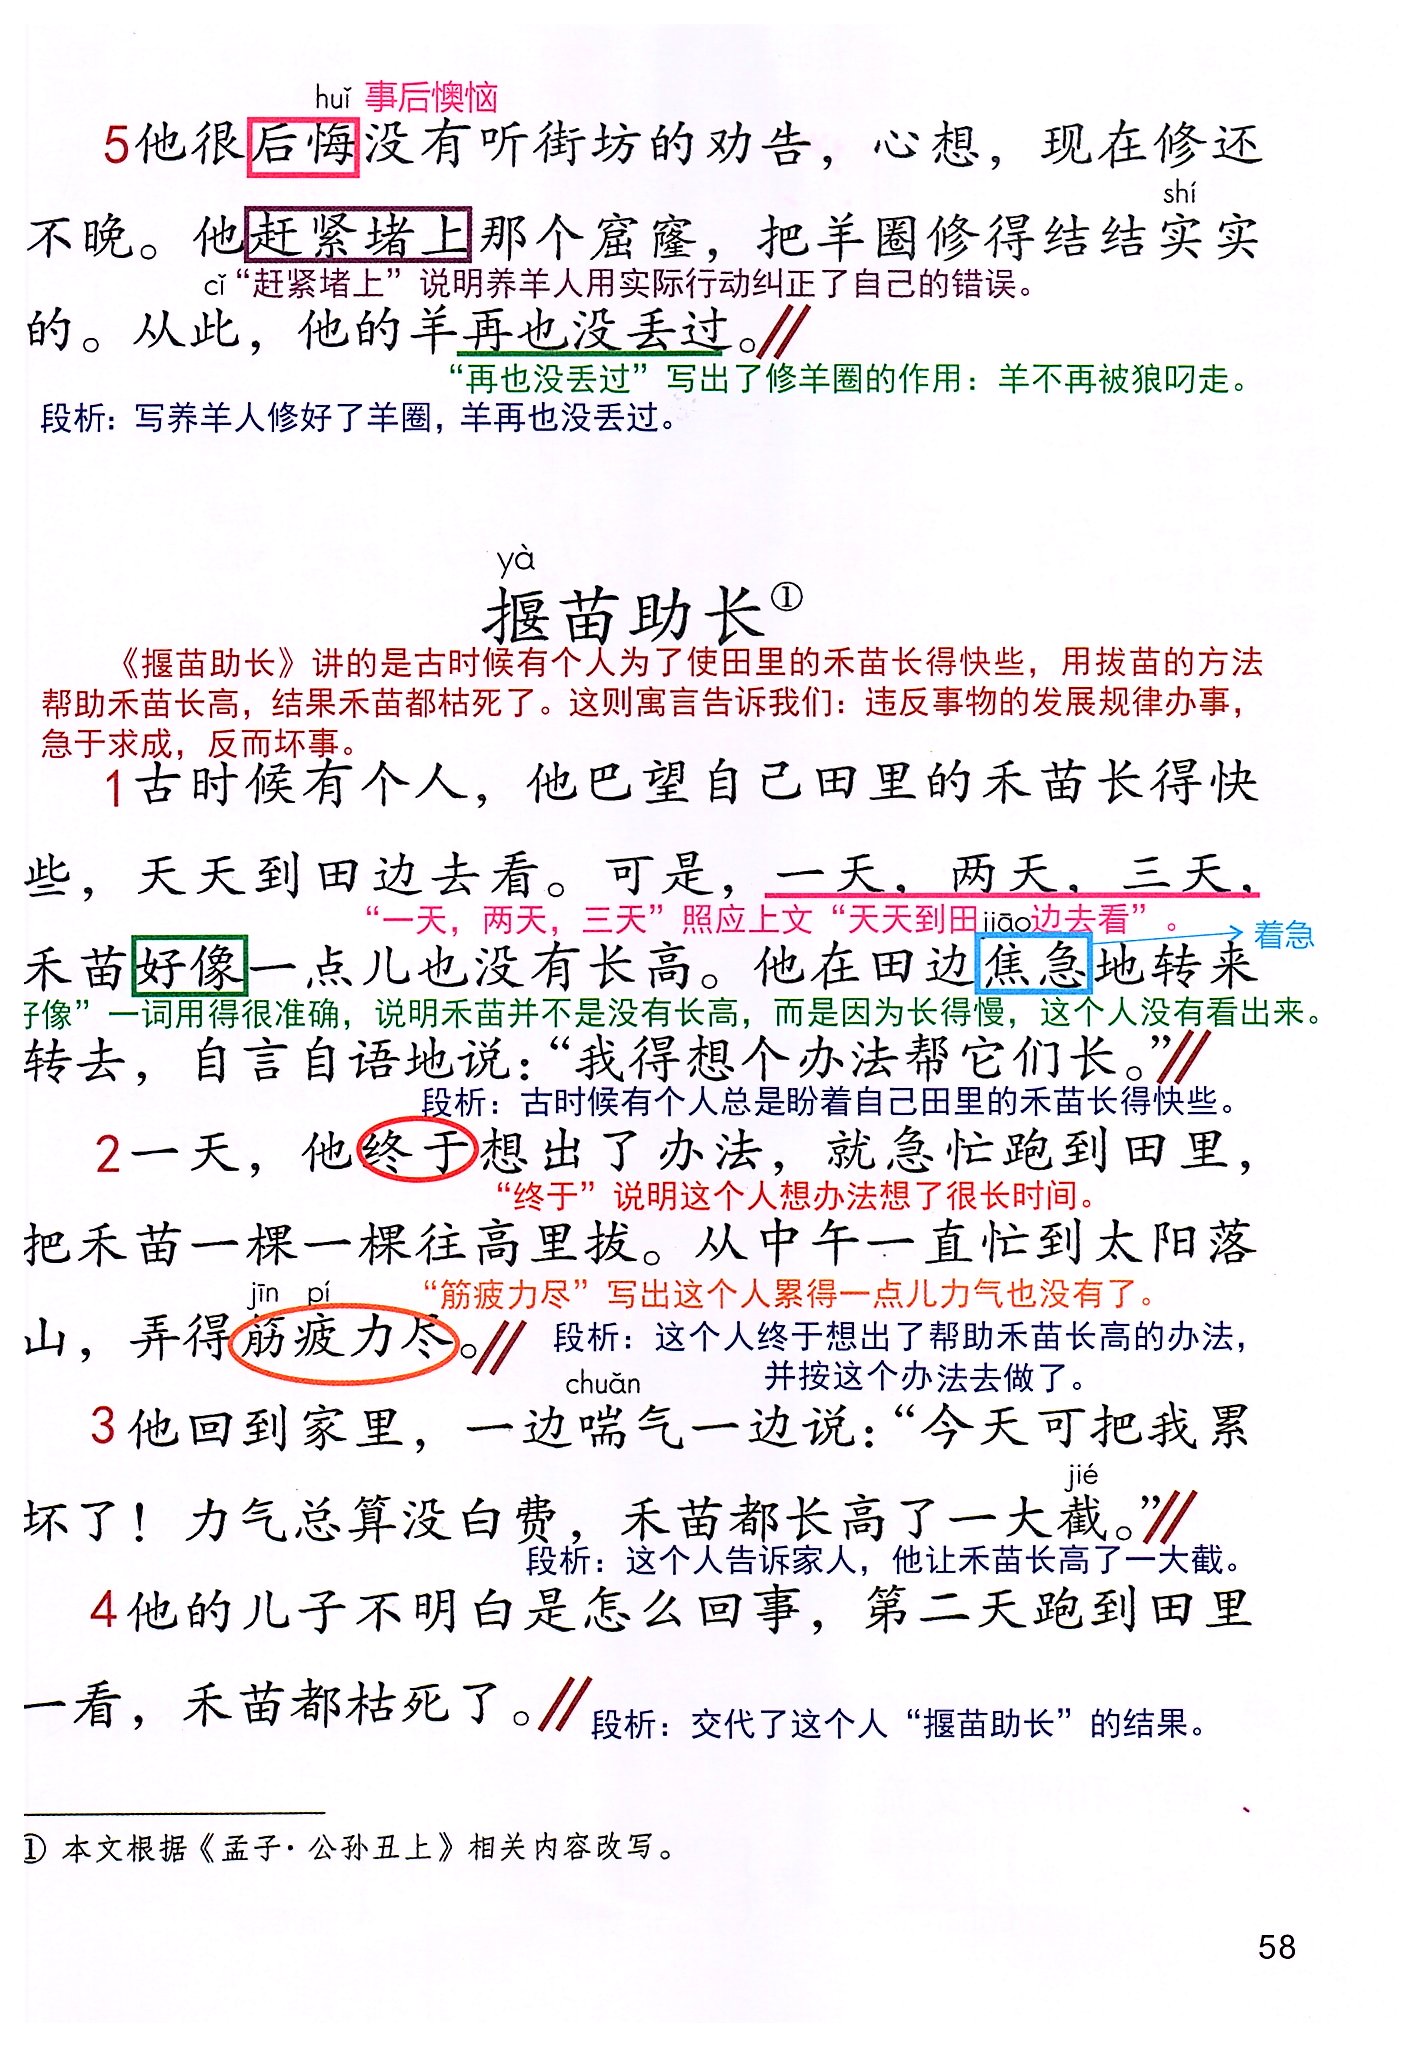 huǐ 事后懊恼
5他很后悔没有听街坊的劝告，心想，现在修还
shí
不晚。他赶紧堵上那个窟窿，把羊圈修得结结实实
cǐ “赶紧堵上”说明养羊人用实际行动纠正了自己的错误。
的。从此，他的羊再也没丢过。
“再也没丢过”写出了修羊圈的作用：羊不再被狼叼走。
段析：写养羊人修好了羊圈，羊再也没丢过。
yà
揠苗助长①
《揠苗助长》讲的是古时候有个人为了使田里的禾苗长得快些，用拔苗的方法
帮助禾苗长高，结果禾苗都枯死了。这则寓言告诉我们：违反事物的发展规律办事，
急于求成，反而坏事。
1古时候有个人，他巴望自己田里的禾苗长得快
些，天天到田边去看。可是，一天，两天，三天，
“一天，两天，三天”照应上文“天天到田边去看”。
jiāo
着急
禾苗好像一点儿也没有长高。他在田边焦急地转来
好像”一词用得很准确，说明禾苗并不是没有长高，而是因为长得慢，这个人没有看出来。
转去，自言自语地说：“我得想个办法帮它们长。”
段析：古时候有个人总是盼着自己田里的禾苗长得快些。
2一天，他终于想出了办法，就急忙跑到田里，
“终于”说明这个人想办法想了很长时间。
把禾苗一棵一棵往高里拔。从中午一直忙到太阳落
jīn pí “筋疲力尽”写出这个人累得一点儿力气也没有了。
山，弄得筋疲力尽。 段析：这个人终于想出了帮助禾苗长高的办法，
并按这个办法去做了。
chuǎn
3他回到家里，一边喘气一边说：“今天可把我累
jié
坏了！力气总算没白费，禾苗都长高了一大截。”
段析：这个人告诉家人，他让禾苗长高了一大截。
4他的儿子不明白是怎么回事，第二天跑到田里
一看，禾苗都枯死了。 段析：交代了这个人“揠苗助长”的结果。
① 本文根据《孟子·公孙丑上》相关内容改写。
58